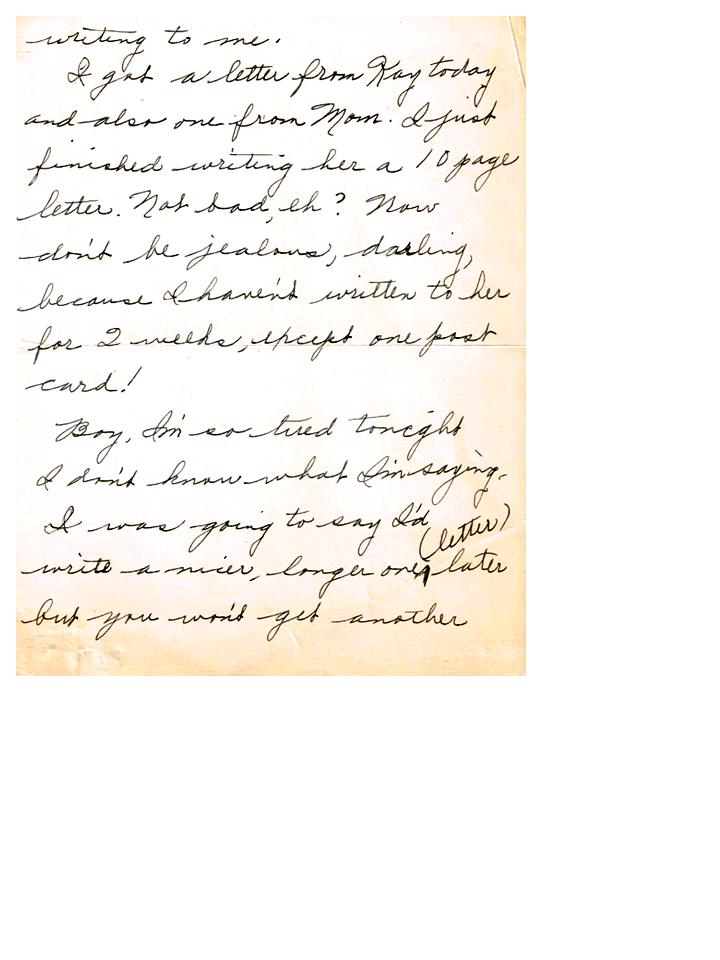 writing to me.
I got a letter from Kay today
and also one from Mom. I just
finished writing her a 10 page
letter. Not bad, eh? Now
don't be jealous, darling,
because I haven't written to her
for 2 weeks, except one post
card!
Boy, I'm so tired tonight
I don't know what I'm saying.
I was going to say I'd
(letter)
write a nicer, longer one later
but you won't get another